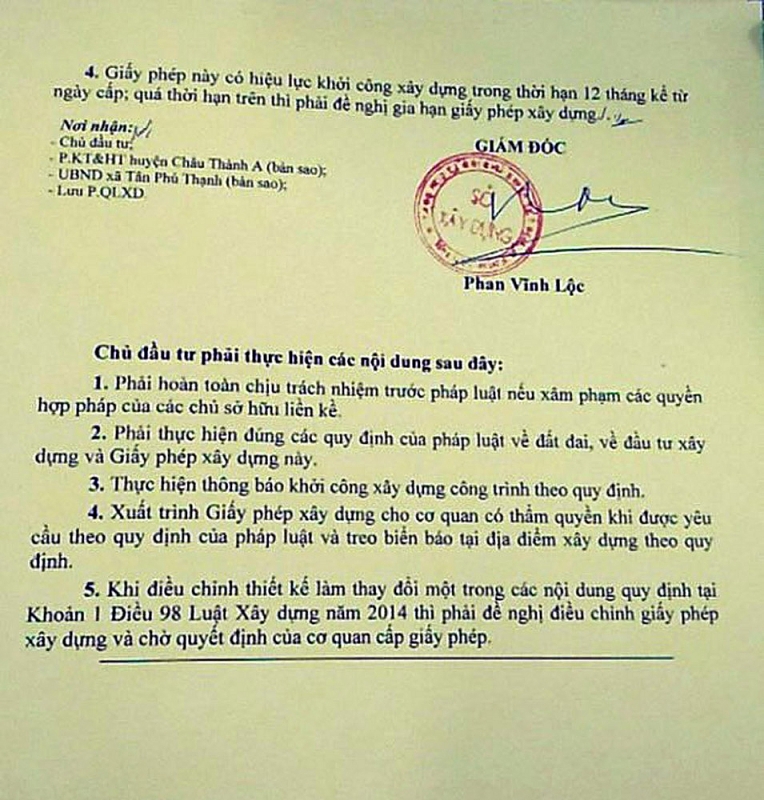 4. Giấy phép này có hiệu lực khởi công xây dựng trong thời hạn 12 tháng kể từ
ngày cấp; quá thời hạn trên thì phải đề nghị gia hạn giấy phép xây dựng./.
Nơi nhận:
- Chủ đầu tư;
- P.KT&HT huyện Châu Thành A (bản sao);
- UBND xã Tân Phú Thạnh (bản sao);
- Lưu P.QLXD.
GIÁM ĐỐC
SỞ
XÂY DỰNG
Phan Vĩnh Lộc
Chủ đầu tư phải thực hiện các nội dung sau đây:
1. Phải hoàn toàn chịu trách nhiệm trước pháp luật nếu xâm phạm các quyền
hợp pháp của các chủ sở hữu liền kề.
2. Phải thực hiện đúng các quy định của pháp luật về đất đai, về đầu tư xây
dựng và Giấy phép xây dựng này.
3. Thực hiện thông báo khởi công xây dựng công trình theo quy định.
4. Xuất trình Giấy phép xây dựng cho cơ quan có thẩm quyền khi được yêu
cầu theo quy định của pháp luật và treo biển báo tại địa điểm xây dựng theo quy
định.
5. Khi điều chỉnh thiết kế làm thay đổi một trong các nội dung quy định tại
Khoản 1 Điều 98 Luật Xây dựng năm 2014 thì phải đề nghị điều chỉnh giấy phép
xây dựng và chờ quyết định của cơ quan cấp giấy phép.